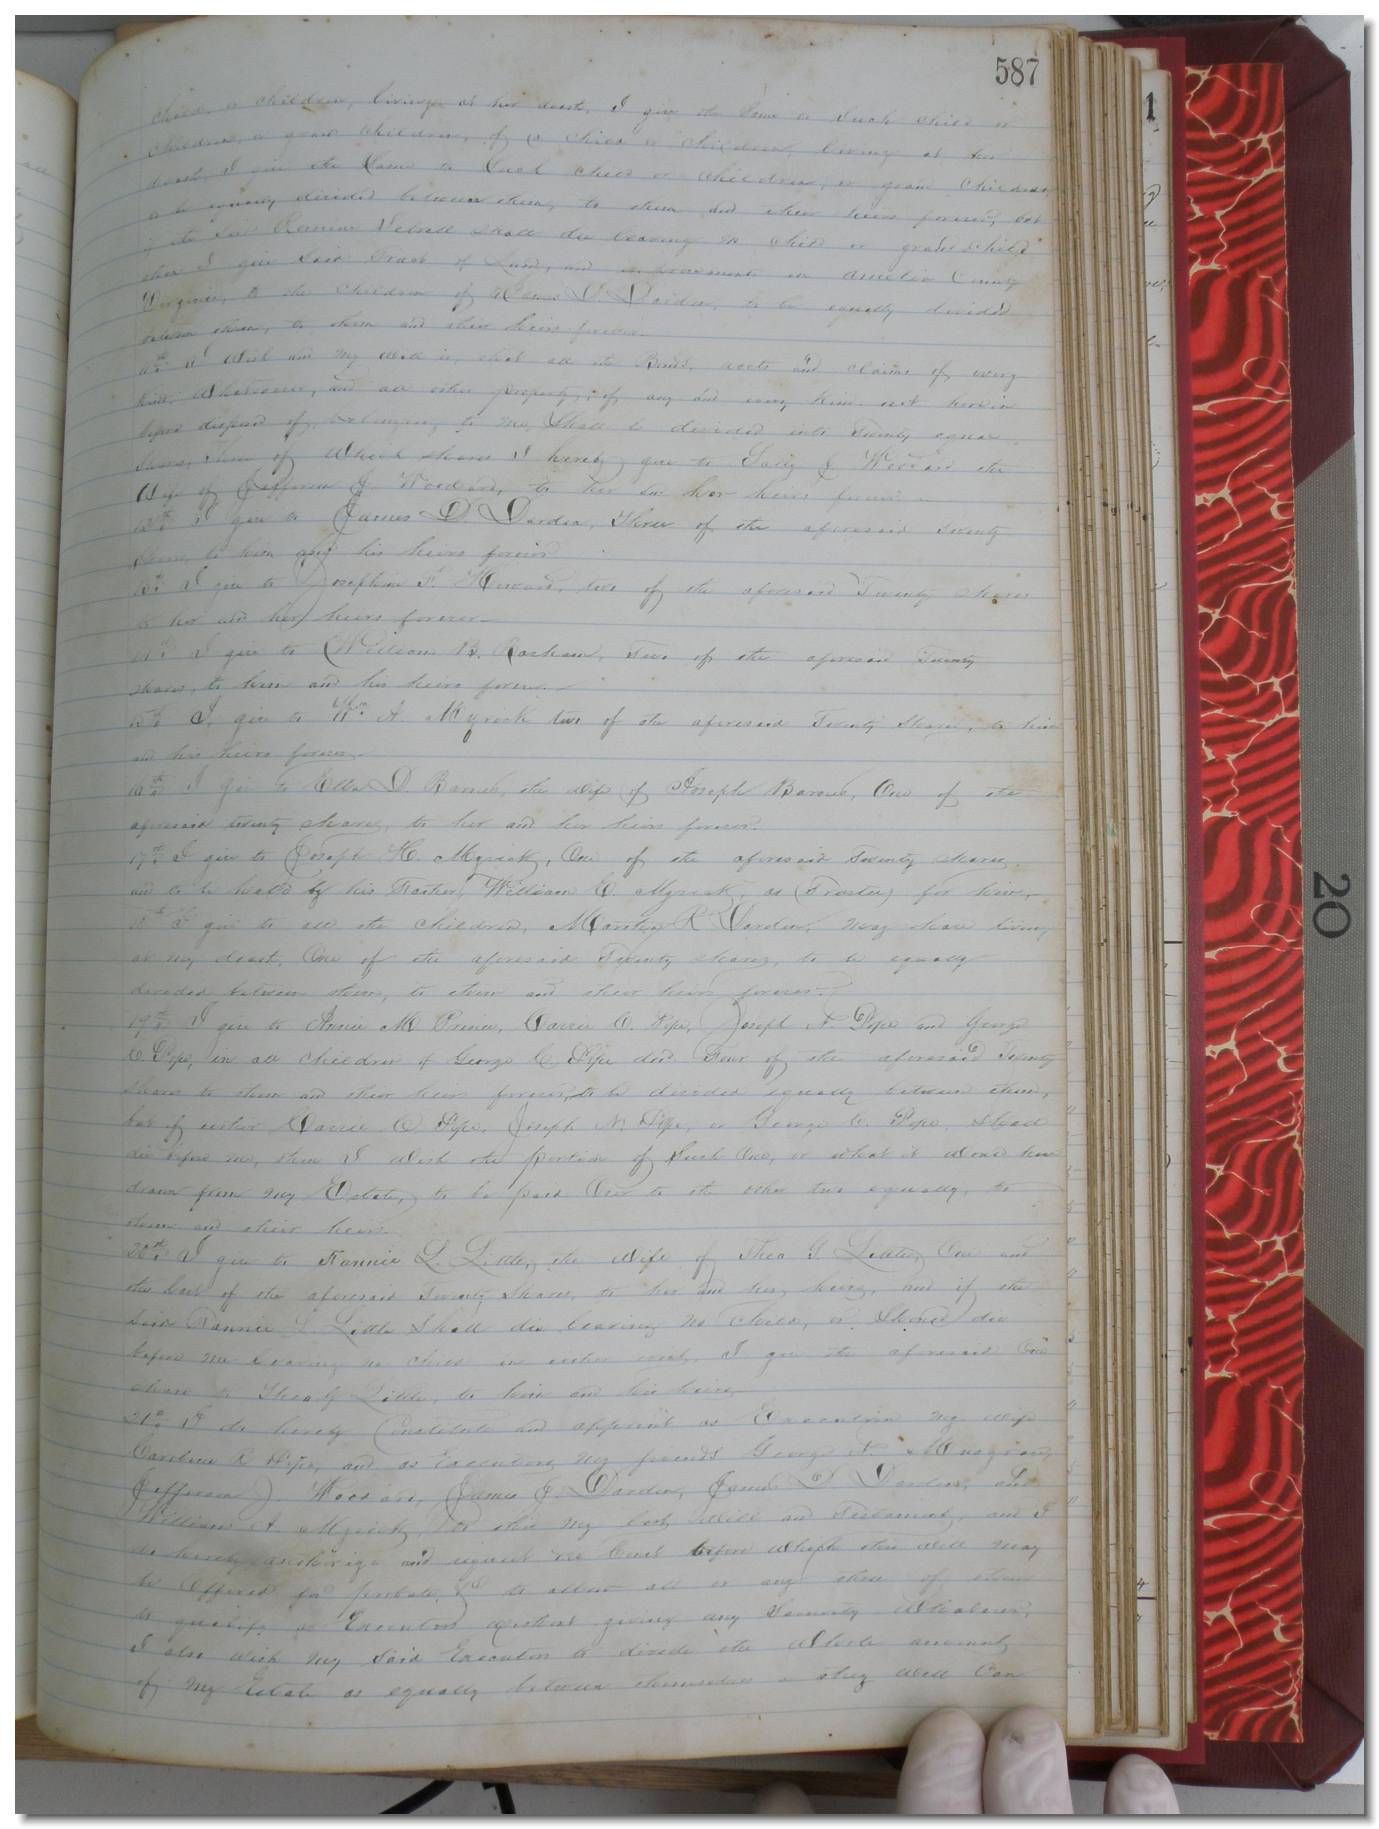 587
child, or children, living at her death, I give the same to such child or
children, or grand children, of a child or children, living at her
death, I give the same to such child or children, or grand children,
to be equally divided between them, to them and their heirs forever, but
if the said shall die leaving no child or grand child
then I give said Tract of Land, and improvements in Amelia County
Virginia, to the children of James D. Darden, to be equally divided
between them, to them and their heirs forever.
11th I wish and my will is, that all the Bonds, accts and claims of every
kind whatsoever, and all other property, of any and every kind not herein
before disposed of, belonging to me, shall be divided into Twenty equal
shares, of which shares I hereby give to Sally J. Woodard the
Wife of Jefferson J. Woodard, to her and her heirs forever
12th I give to James D. Darden, Three of the aforesaid twenty
shares, to him and his heirs forever
13th I give to Josephine F. two of the aforesaid Twenty shares
to her and her heirs forever
14th I give to William B. Two of the aforesaid Twenty
shares, to him and his heirs forever.
15th I give to Wm A. Myrick two of the aforesaid Twenty Shares, to him
and his heirs forever
16th I give to Ella D. Barnes, the wife of Joseph Barnes, One of the
aforesaid twenty shares, to her and her heirs forever.
17th I give to Joseph H. Myrick, One of the aforesaid Twenty shares,
and to be held by his Father, William E. Myrick, as (Trustee) for him.
18th I give to all the children, R Darden, may have living
at my death, One of the aforesaid Twenty shares, to be equally
divided between them, to them and their heirs forever.
19th I give to Annie M Prince, Carrie O. Pope, Joseph N. Pope and George
C. Pope, in all children of George C. Pope decd. Four of the aforesaid Twenty
shares to them and their heirs forever, to be divided equally between them,
but if either Carrie O Pope, Joseph N. Pope, or George C. Pope, Should
die before me, then I wish the portion of Such One, or what it would have
drawn from my Estate, to be paid Over to the other two equally, to
them and their heirs.
20th I give to Fannie L. Little, the wife of Theo G. Little, One and
the last of the aforesaid Twenty Shares, to her and her heirs, and if the
said Fannie L. Little Shall die leaving no Child, or Should die
before me leaving no child in either event, I give the aforesaid One
share to Theo G Little, to him and his heirs
21st I do hereby Constitute and appoint as Executrix my wife
Caroline R Pope, and as Executors my friends George N. Musgrave,
Jefferson J Woodard, James J. Darden, James D Darden, and
William A Myrick, to this my last Will and Testament, and I
do hereby authorize and request the Court before which this will may
be Offered for probate, to allow all or any of them
to qualify as Executors without giving any Security Whatever,
I also wish my said Executors to divide the Whole amount
of my Estate as equally between themselves as they well Can
1
20